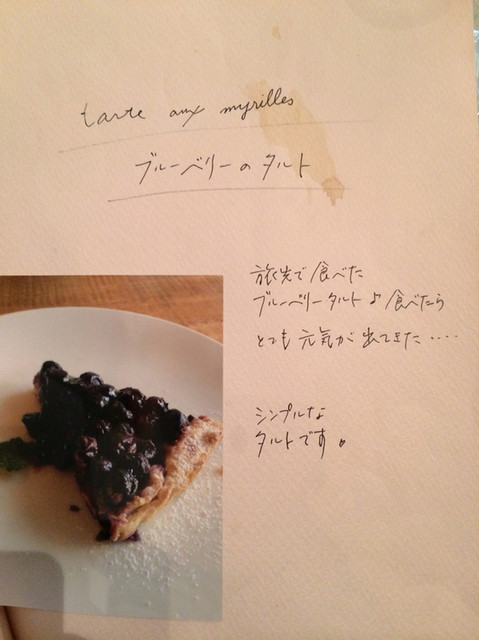 tarte aux myrilles
ブルーベリーのタルト
旅先で食べた
ブルーベリータルト♪食べたら
とても元気が出てきた‥‥
シンプルな
タルトです。